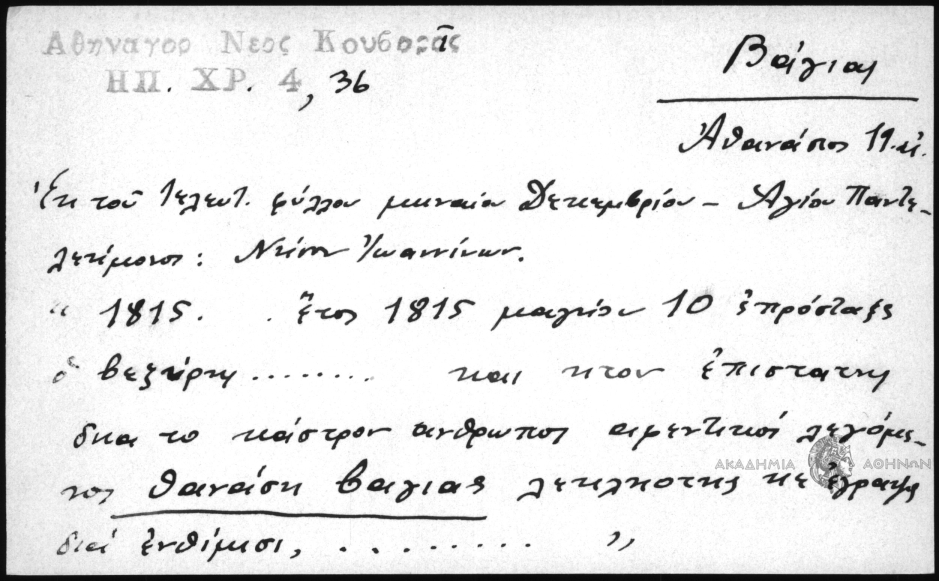 Αθηναγορ Νεος Κουβαρᾶς
ΗΠ. ΧΡ. 4, 36
Βάγιας
Ἀθανάσιος 19.αἰ.
Ἐκ τοῦ τελευτ. φύλλου μηναίου Δεκεμβρίου - Ἁγίου Παντε-
λεήμονος: Νήσου Ἰωαννίνων.
" 1815. . ἔτος 1815 μαγιου 10 ἐπρόσταξε
ὁ βεζήρης ........ και ητον ἐπιστατης
δηα το κάστρον ανθρωπος αφεντικος λεγόμε-
νος θανάση βαγιας κε έγραψε
διά ἐνθίμισι, ......... "
ΑΚΑΔΗΜΙΑ ΑΘΗΝΩΝ